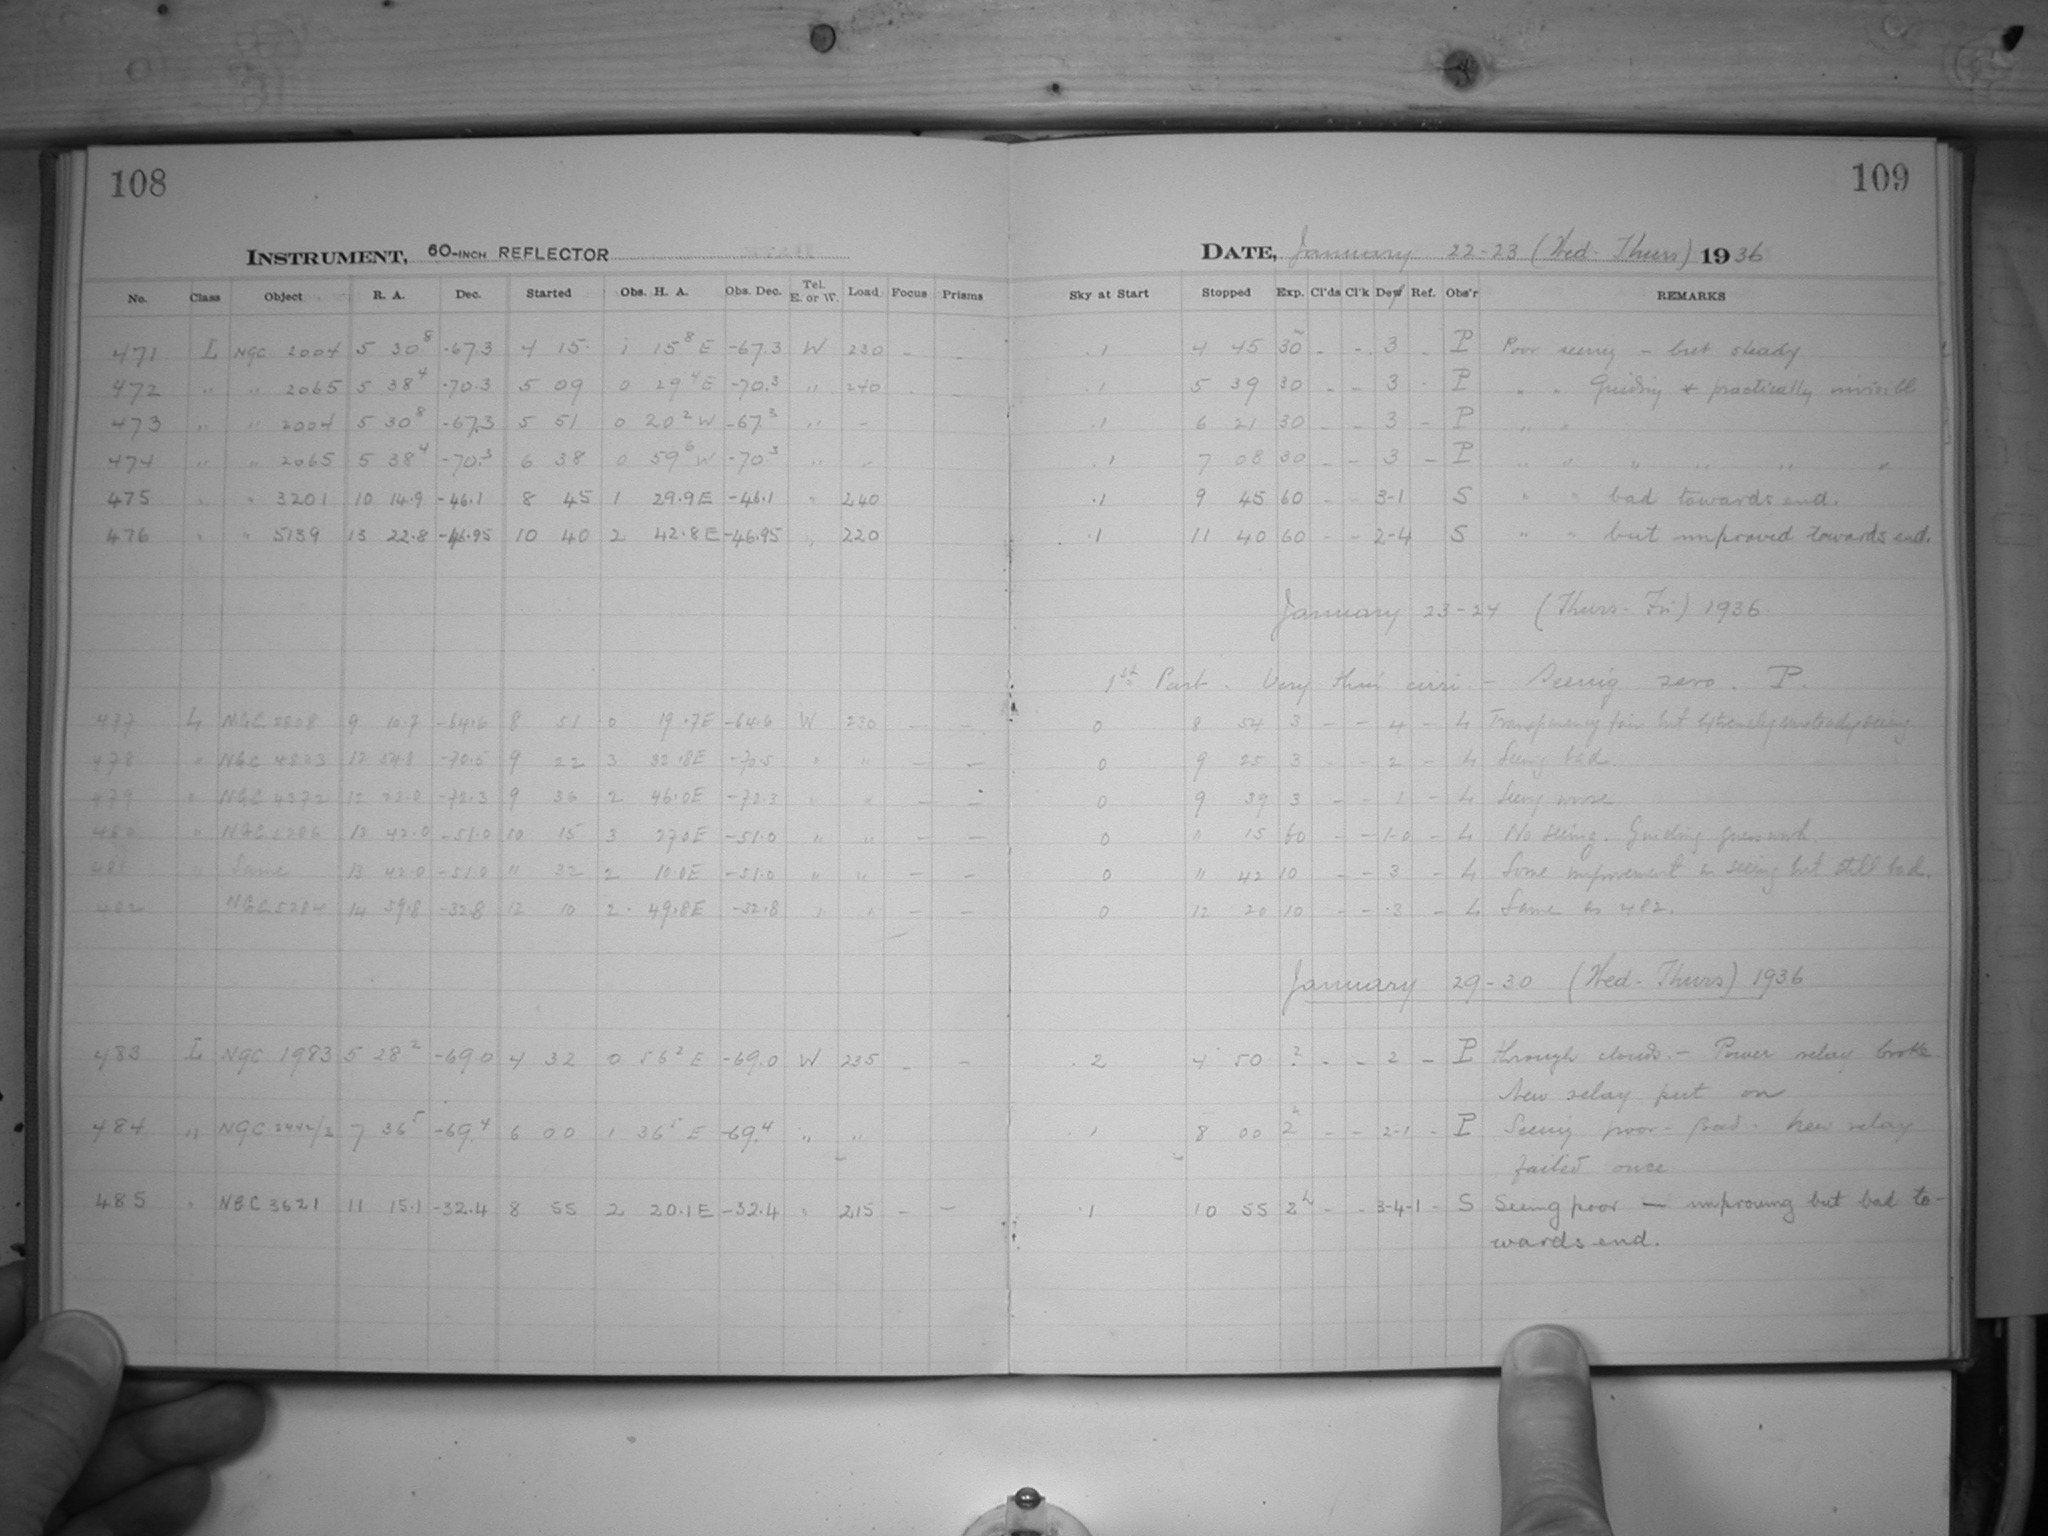 108
109
INSTRUMENT, 60-INCH REFLECTOR
DATE, January 22-23 (Wed-Thurs) 1936
No. Class Object R. A. Dec. Started Obs. H. A. Obs. Dec. Tel. E. or W. Load Focus Prisms Sky at Start Stopped Exp. Cl'ds Cl'k Dew Ref. Obs'r REMARKS
471 L NGC 2004 5 30.8 -67.3 4 15 1 15.8 E -67.3 W 230 - - .1 4 45 30 - - 3 - P Poor seeing - but steady
472 " " 2065 5 38.4 -70.3 5 09 0 29.4 E -70.3 " 240 .1 5 39 30 - - 3 - P " " Guiding * practically invisible
473 " " 2004 5 30.8 -67.3 5 51 0 20.2 W -67.3 " - .1 6 21 30 - - 3 - P " "
474 " " 2065 5 38.4 -70.3 6 38 0 59.6 W -70.3 " " .1 7 08 30 - - 3 - P " " " " " "
475 " " 3201 10 14.9 -46.1 8 45 1 29.9 E -46.1 " 240 .1 9 45 60 - - 3-1 S " " bad towards end.
476 " " 5139 13 22.8 -46.95 10 40 2 42.8 E -46.95 " 220 .1 11 40 60 - - 2-4 S " " but improved towards end.
January 23-24 (Thurs-Fri) 1936
1st Part. Very thin cirri - Seeing zero. P.
477 L NGC 2808 9 10.7 -64.6 8 51 0 19.7E -64.6 W 230 - - 0 8 54 3 - - 4 - L Transparency fair but extremely unsteady seeing
478 " NGC 4833 12 -70.5 9 22 3 32.8E -70.5 " " - - 0 9 25 3 - - 2 - L Seeing bad.
479 " NGC 4372 12 22.0 -72.3 9 36 2 46.0E -72.3 " " - - 0 9 39 3 - - 1 - L Seeing worse
480 " NGC 5286 13 42.0 -51.0 10 15 3 27.0E -51.0 " " - - 0 " 15 60 - - 1-0 - L No seeing. Guiding guesswork.
481 " Same 13 42.0 -51.0 " 32 2 10.0E -51.0 " " - - 0 " 42 10 - - 3 - L Some improvement in seeing but still bad.
482 14 59.8 -32.8 12 10 2 49.8E -32.8 " " - - 0 12 20 10 - - 3 - L Same as 482.
January 29-30 (Wed-Thurs) 1936
483 L NGC 1983 5 28.2 -69.0 4 32 0 56.2 E -69.0 W 235 - - .2 4 50 ? - - 2 - P through clouds. - Power relay broke.
New relay put on
484 " NGC 2442/3 7 36.5 -69.4 6 00 1 36.5 E -69.4 " " .1 8 00 2h - - 2-1 - P Seeing poor - bad - new relay
failed once
485 " NGC 3621 11 15.1 -32.4 8 55 2 20.1 E -32.4 " 215 - - .1 10 55 2h - - 3-4-1 - S Seeing poor — improving but bad to-
wards end.